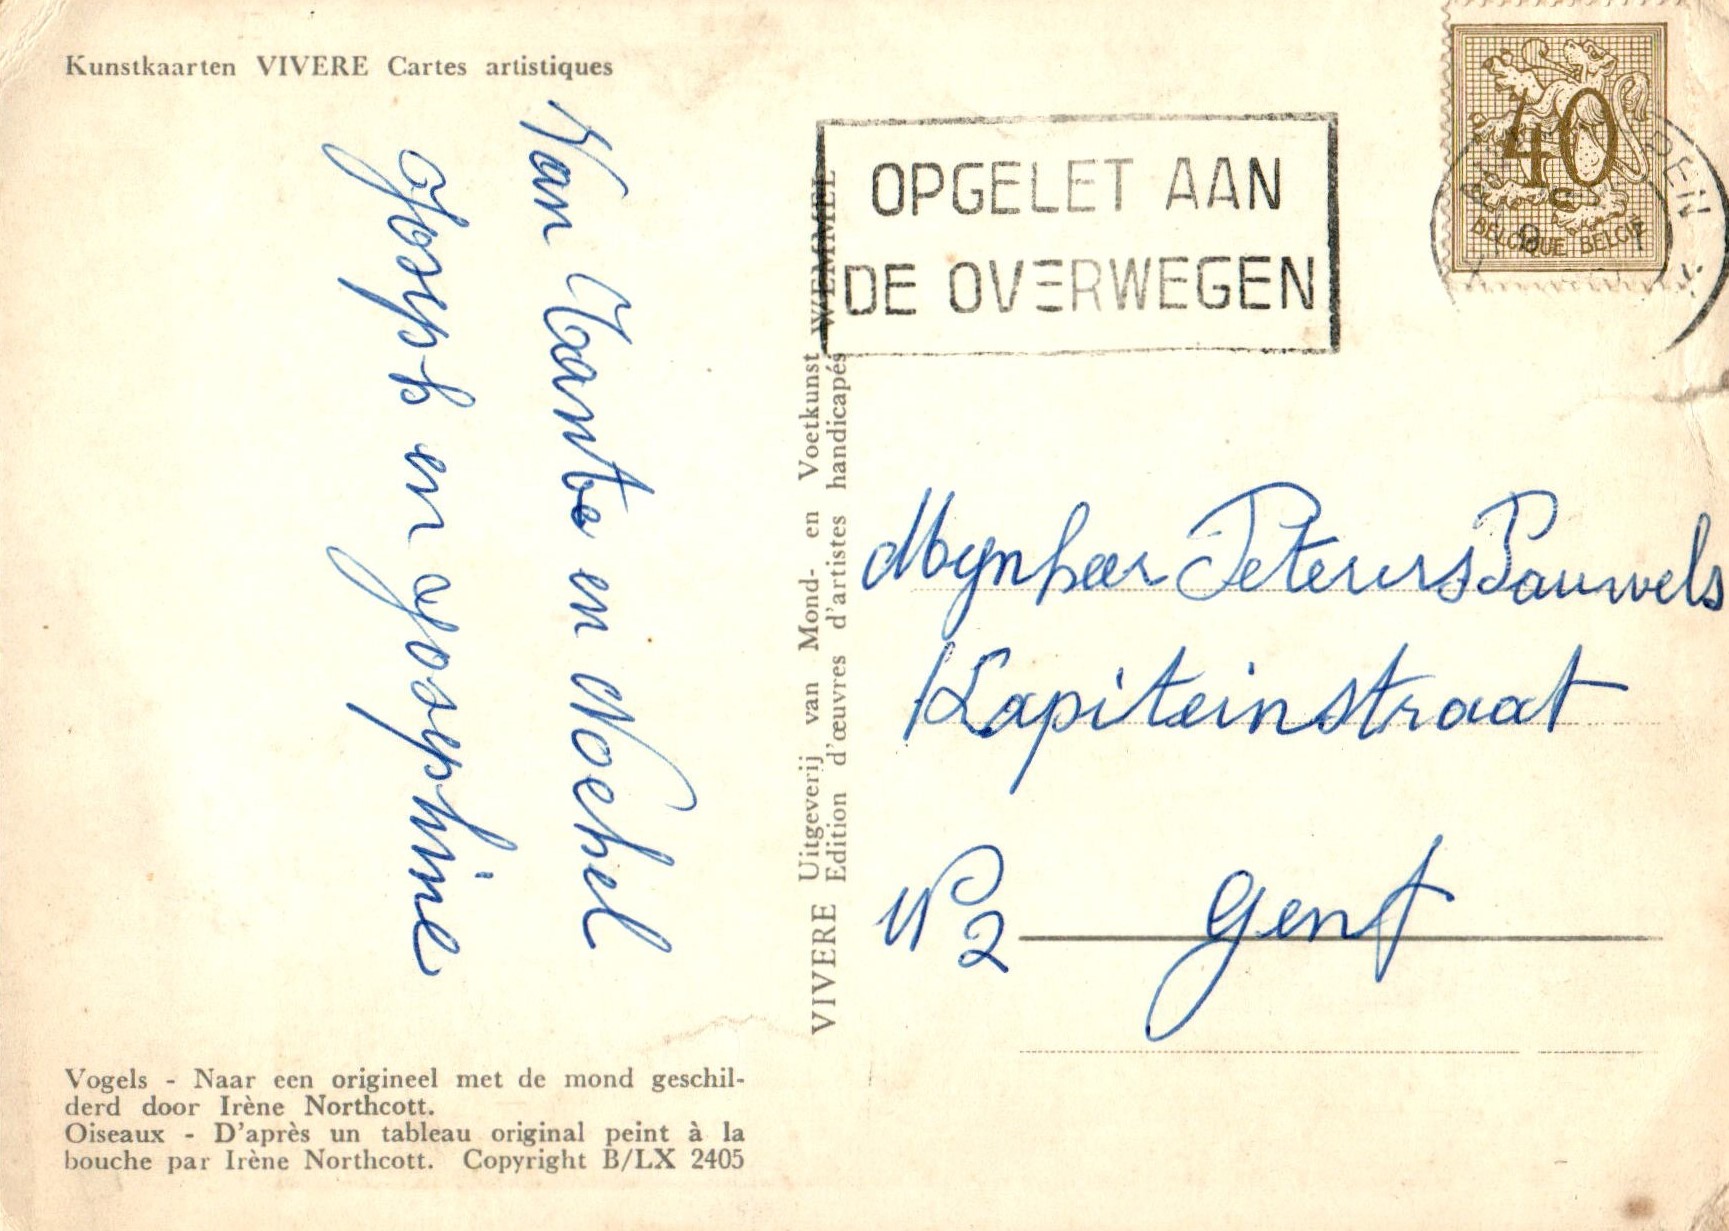 Kunstkaarten VIVERE Cartes artistiques
Van Tante en Noehel
Joseph en Josephine
Vogels - Naar een origineel met de mond geschil-
derd door Irène Northcott.
Oiseaux - D'après un tableau original peint à la
bouche par Irène Northcott. Copyright B/LX 2405
VIVERE Uitgeverij van Mond- en Voetkunst WEMMEL
Edition d'œuvres d'artistes handicapés
OPGELET AAN
DE OVERWEGEN
40
BELGIQUE BELGIË
Mynheer Peteres Pauwels
Kapiteinstraat
N° 2 Gent